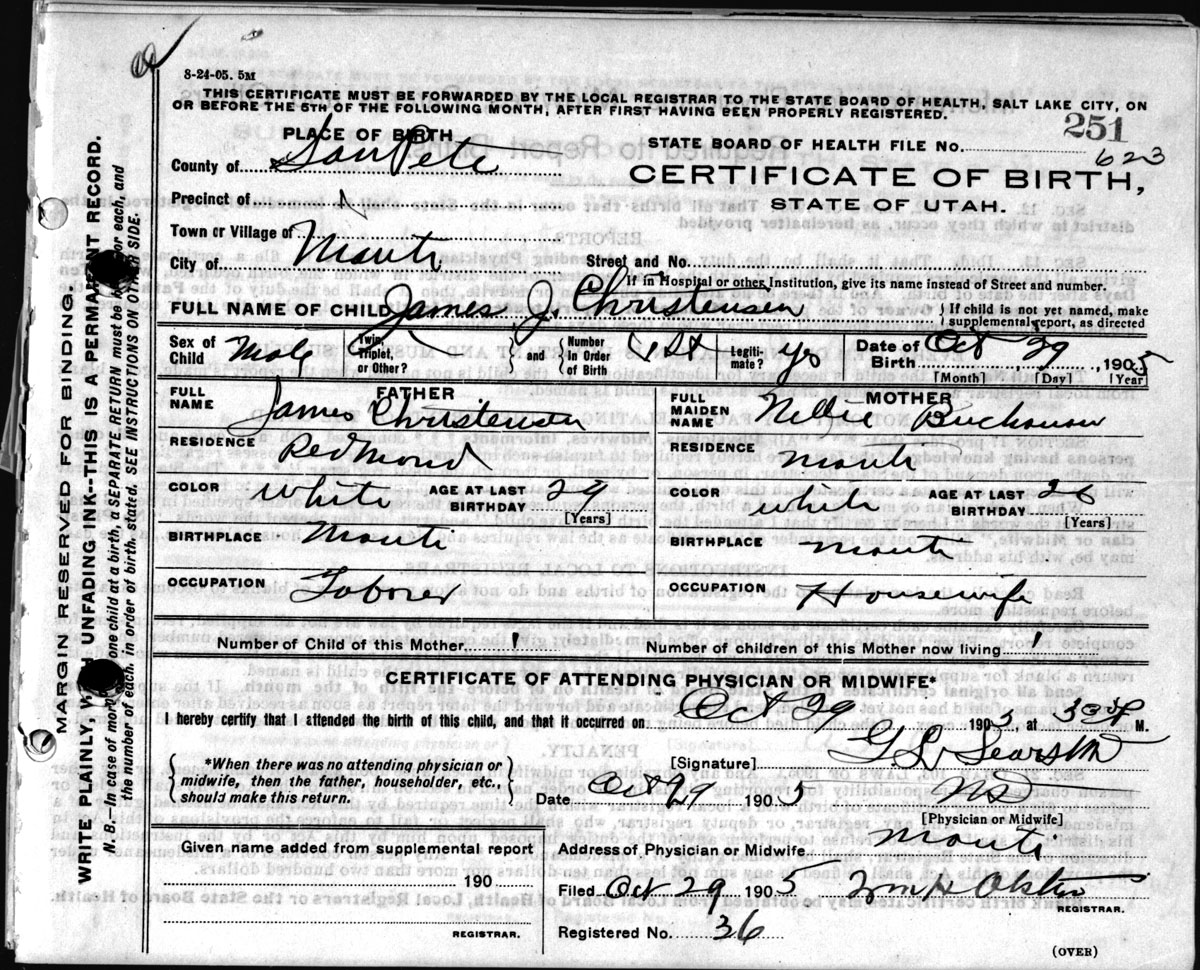 8-24-05. 5M
THIS CERTIFICATE MUST BE FORWARDED BY THE LOCAL REGISTRAR TO THE STATE BOARD OF HEALTH, SALT LAKE CITY, ON
OR BEFORE THE 5TH OF THE FOLLOWING MONTH, AFTER FIRST HAVING BEEN PROPERLY REGISTERED.
251
PLACE OF BIRTH
STATE BOARD OF HEALTH FILE No. 623
County of SanPete
CERTIFICATE OF BIRTH,
STATE OF UTAH.
Precinct of
Town or Village of
City of Manti
Street and No.
If in Hospital or other Institution, give its name instead of Street and number.
FULL NAME OF CHILD James J. Christensen { If child is not yet named, make supplemental report, as directed
Sex of Child Male Twin, Triplet, or Other? } and { Number in Order of Birth 1st Legitimate? yes Date of Birth Oct 29, 1905
[Month] [Day] [Year]
FATHER
FULL NAME James Christensen
RESIDENCE Redmond
COLOR White AGE AT LAST BIRTHDAY 29
[Years]
BIRTHPLACE Manti
OCCUPATION Laborer
MOTHER
FULL MAIDEN NAME Nellie Buchanan
RESIDENCE Manti
COLOR White AGE AT LAST BIRTHDAY 26
[Years]
BIRTHPLACE Manti
OCCUPATION Housewife
Number of Child of this Mother 1 Number of children of this Mother now living 1
CERTIFICATE OF ATTENDING PHYSICIAN OR MIDWIFE*
I hereby certify that I attended the birth of this child, and that it occurred on Oct 29 1905, at M.
*When there was no attending physician or
midwife, then the father, householder, etc.,
should make this return.
[Signature]
Date Oct 29 1905 MD
[Physician or Midwife]
Given name added from supplemental report
190
REGISTRAR.
Address of Physician or Midwife Manti
Filed Oct 29 1905
REGISTRAR.
Registered No. 36
(OVER)
MARGIN RESERVED FOR BINDING
WRITE PLAINLY, WITH UNFADING INK--THIS IS A PERMANENT RECORD.
N. B.—In case of more than one child at a birth, a SEPARATE RETURN must be for each, and
the number of each, in order of birth, stated. SEE INSTRUCTIONS ON OTHER SIDE.